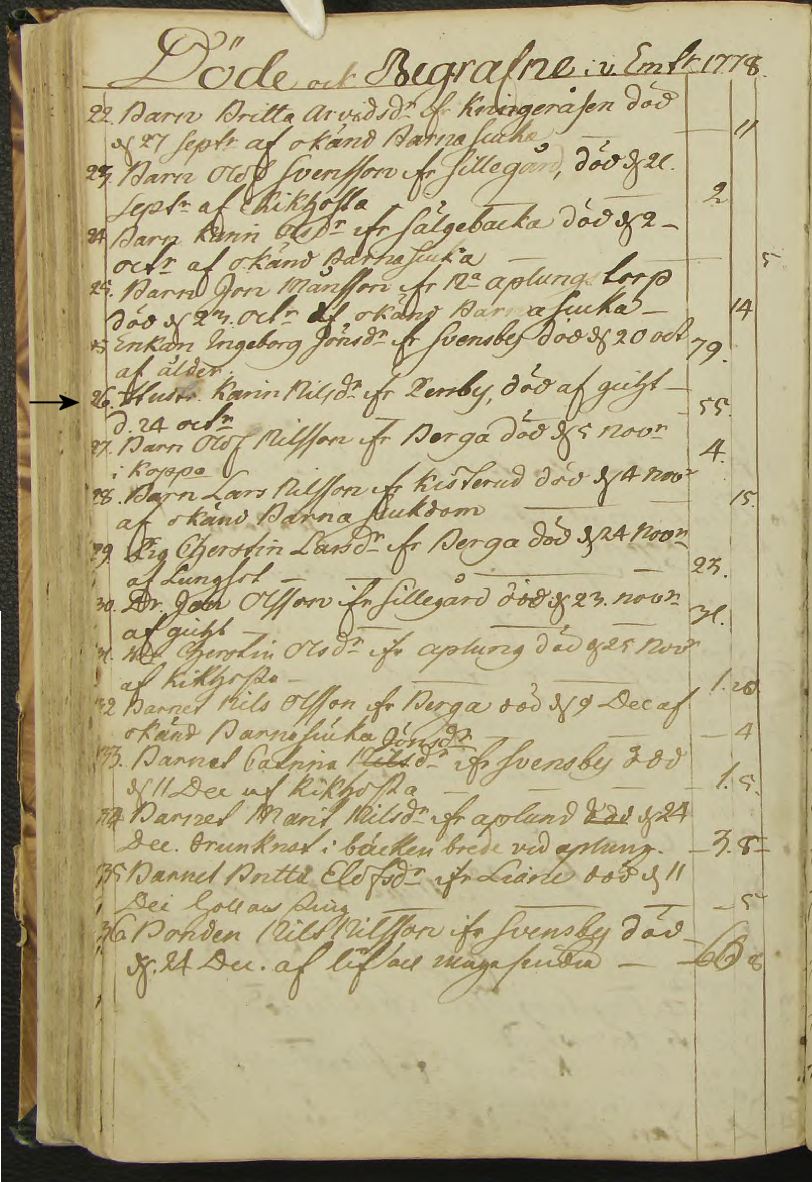 Döde och Begrafne i v. Emtr 1778.
22. Barn Britta Arvidsdr ifr Kningeråsen död
d 27 Septr af okänd Barnasiuka — 11
23. Barn Olof Svensson ifr Sillegård, död d 21.
Septr af Kikhosta — 2
24 Barn Karin Olsdr ifr Sälgebacka död d 2 –
Octr af okänd Barnasiuka — 5
25. Barn Jon Månsson ifr Na aplungstorp
död d 23. Octr af okänd Barnasiuka – 14
Enkan Ingeborg Jönsdr ifr Svensby död d 20 oct
af ålder. 79.
26. Hustr. Karin Nilsdr ifr Persby, död af gicht –
d. 24 octr 55.
27. Barn Olof Nilsson ifr Berga död d 5 Novr
i Koppo 4.
28. Barn Lars Nilsson ifr Kisterud död d 4 Novr
af okänd Barna siukdom — 15.
29. Pig Cherstin Larsdr ifr Berga död d 24 Novr
af Lungsot — 23.
30. Dr. Jan Olsson ifr Sillegård död d 23. novr
af gicht — 31.
31. Cherstin Olsdr ifr aplung död d 25 Novr
af Kikhosta –
32 Barnet Nils Olsson ifr Berga död d 9 Dec af
okänd Barnasiuka — 4
Jönsdr
33. Barnet Catrina Nilsdr ifr Svensby död
d 11 Dec af Kikhosta — 1. 5.
34 Barnet Marit Nilsdr ifr aplund död d 24
Dec. drunknat i bäcken brede vid aplung. — 3. 8
35 Barnet Britta Elofsdr ifr Liane död d 11
Dec — 5
36 Bonden Nils Nilsson ifr Svensby död
d. 24 Dec. af